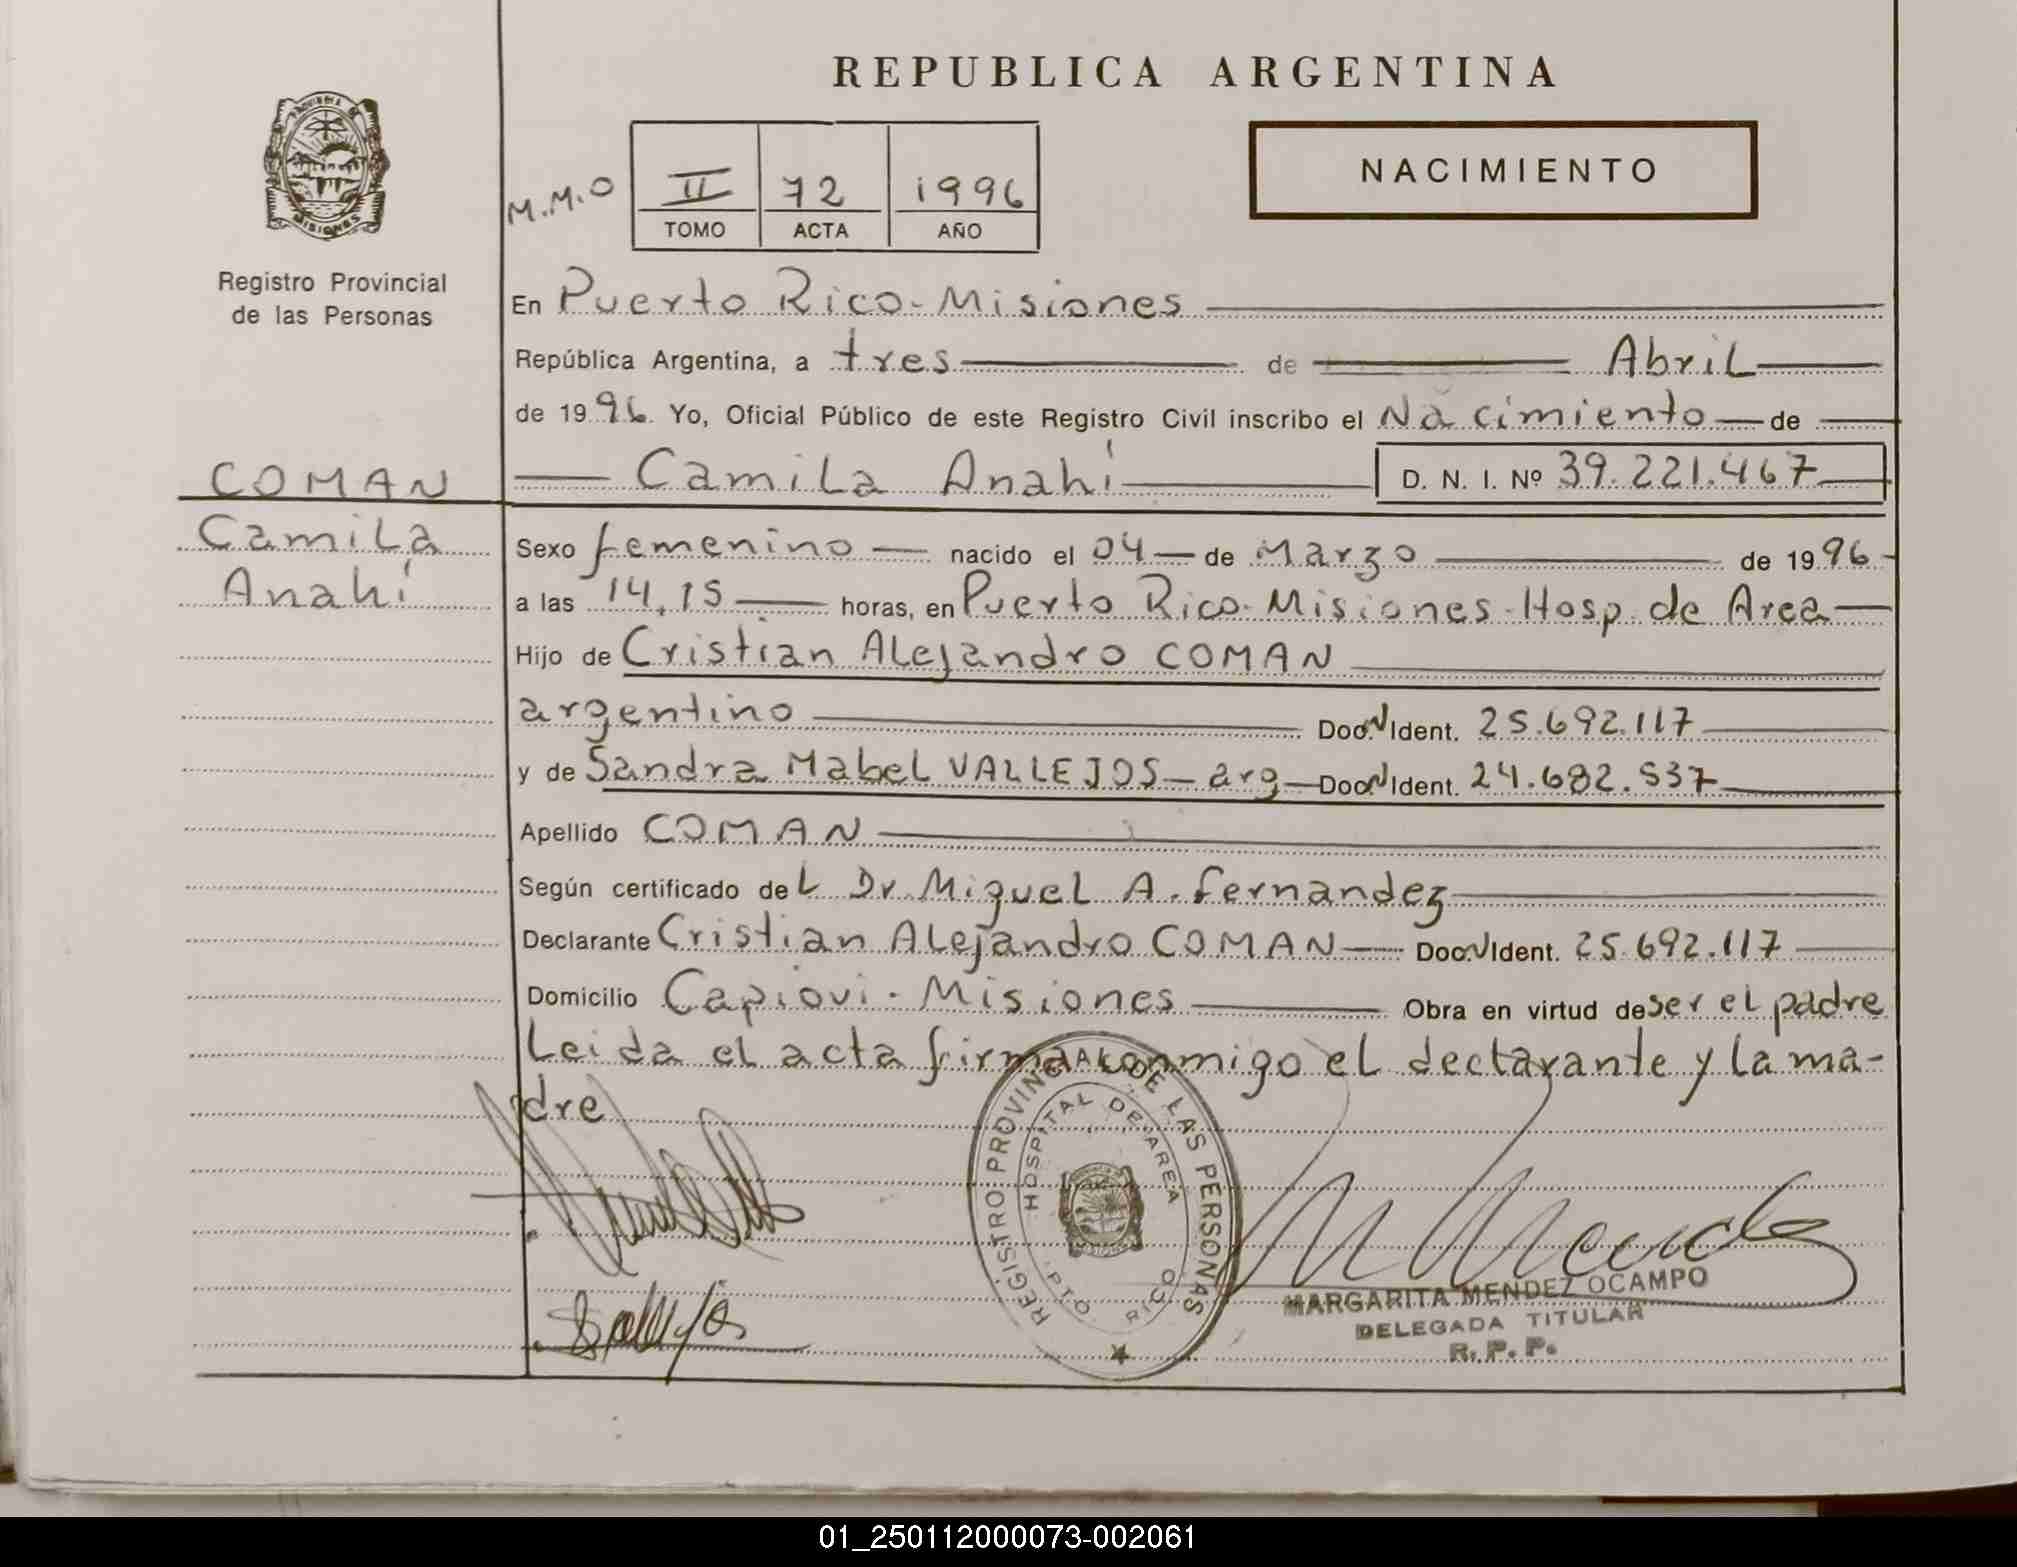 REPUBLICA ARGENTINA
PROVINCIA DE MISIONES
Registro Provincial
de las Personas
M.M.O
II 72 1996
TOMO ACTA AÑO
NACIMIENTO
En Puerto Rico - Misiones
República Argentina, a tres de Abril
de 1996. Yo, Oficial Público de este Registro Civil inscribo el Nacimiento de
COMAN
Camila
Anahí
Camila Anahí D. N. I. Nº 39.221.467
Sexo femenino nacido el 04 de Marzo de 1996
a las 14.15 horas, en Puerto Rico - Misiones - Hosp. de Area
Hijo de Cristian Alejandro COMAN
argentino Doc. Ident. 25.692.117
y de Sandra Mabel VALLEJOS - arg Doc. Ident. 24.682.537
Apellido COMAN
Según certificado del Dr. Miguel A. Fernandez
Declarante Cristian Alejandro COMAN Doc. Ident. 25.692.117
Domicilio Capiovi - Misiones Obra en virtud de ser el padre
Leida el acta firma conmigo el declarante y la ma-
dre
REGISTRO PROVINCIAL DE LAS PERSONAS
HOSPITAL DE AREA
PTO. RICO
MARGARITA MENDEZ OCAMPO
DELEGADA TITULAR
R. P. P.
01_250112000073-002061